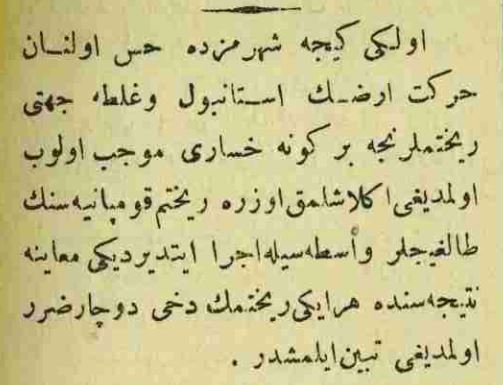 اولكی كیجه شهرمزده حس اولنـان
حركت ارضـك اسـتانبول وغلطه جهتی
ریختملرنجه بر كونه خساری موجب اولوب
اولمدیغی اكلاشلمق اوزره ریختم قومپانیه سنك
طالغیجلر واسطه سیله اجرا ایتدیردیكی معاینه
نتیجه سنده هر ایكی ریختمك دخی دوچار ضرر
اولمدیغی تبین ایلمشدر .